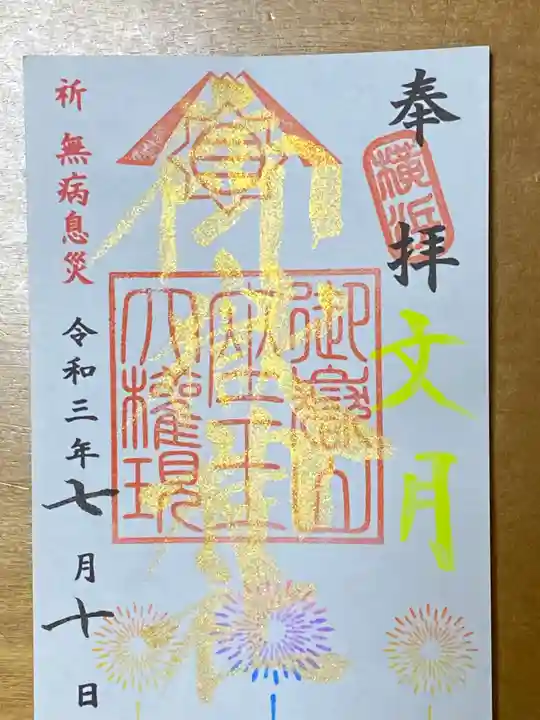 奉拝
横浜
文月
御嶽山
座王
大権現
祈 無病息災
令和三年七月十日